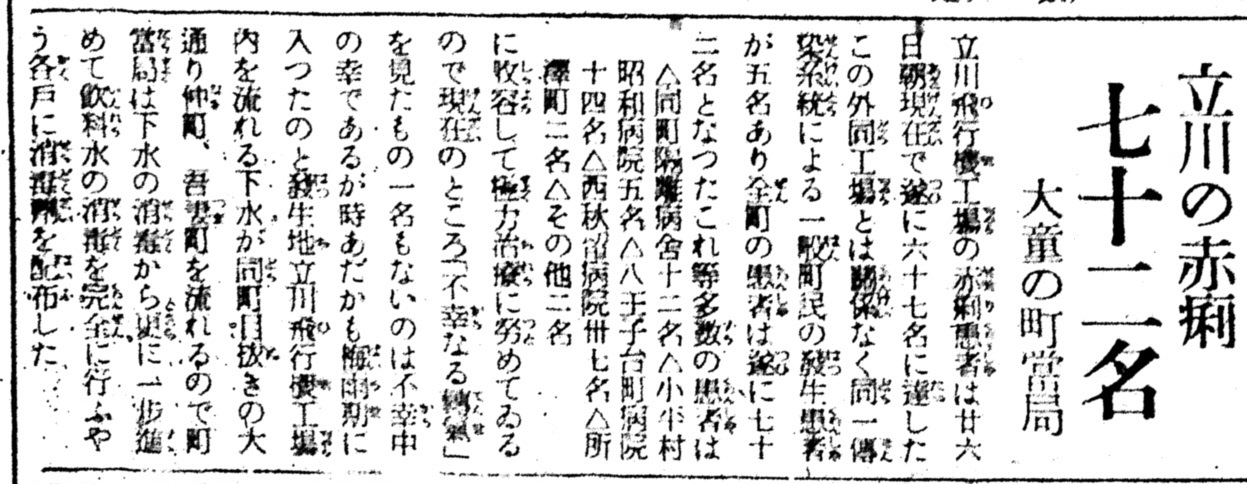 立川の赤痢
七十二名
大童の町當局
立川飛行機工場の赤痢患者は廿六
日朝現在で遂に六十七名に達した
この外同工場とは關係なく同一傳
染系統による一般町民の發生患者
が五名あり全町の患者は遂に七十
二名となつたこれ等多数の患者は
△同町隔離病舍十二名△小平村
昭和病院五名△八王子台町病院
十四名△西秋留病院卅七名△所
澤町二名△その他二名
に收容して極力治療に努めてゐる
ので現在のところ「不幸なる轉歸」
を見たもの一名もないのは不幸中
の幸であるが時あだかも梅雨期に
入つたのと發生地立川飛行機工場
内を流れる下水が同町目抜きの大
通り仲町、吾妻町を流れるので町
當局は下水の消毒から更に一步進
めて飮料水の消毒を完全に行ふや
う各戸に消毒劑を配布した